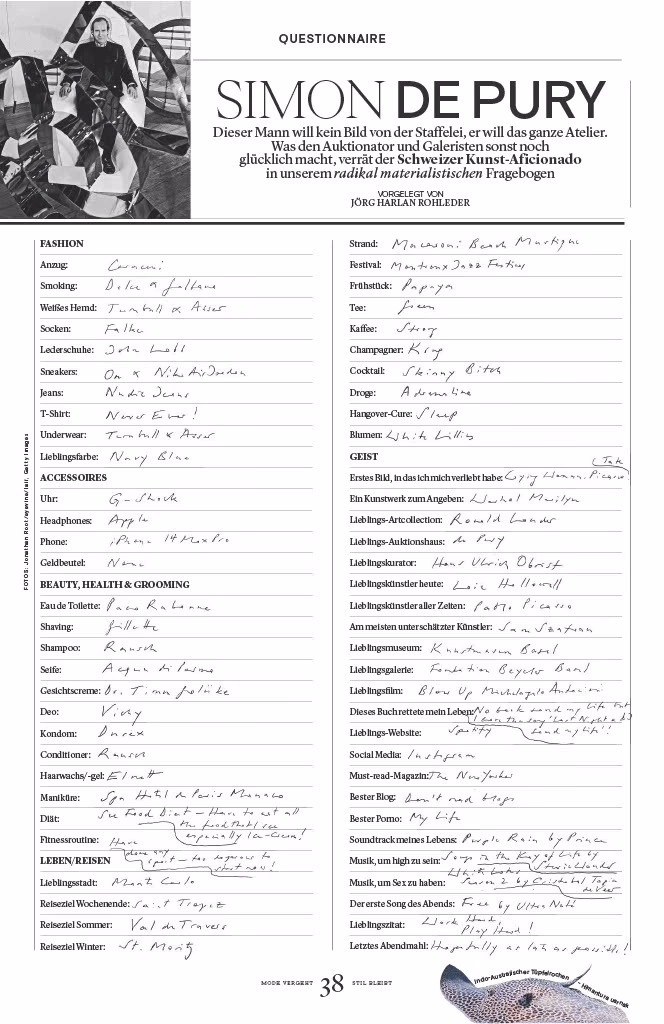 QUESTIONNAIRE
SIMON DE PURY
Dieser Mann will kein Bild von der Staffelei, er will das ganze Atelier.
Was den Auktionator und Galeristen sonst noch
glücklich macht, verrät der Schweizer Kunst-Aficionado
in unserem radikal materialistischen Fragebogen
VORGELEGT VON
JÖRG HARLAN ROHLEDER
FASHION
Anzug: Caraceni
Smoking: Dolce & Gabbana
Weißes Hemd: Turnbull & Asser
Socken: Falke
Lederschuhe: John Lobb
Sneakers: On & Nike Air Jordan
Jeans: Nudie Jeans
T-Shirt: Never Ever!
Underwear: Turnbull & Asser
Lieblingsfarbe: Navy Blue
ACCESSOIRES
Uhr: G-Shock
Headphones: Apple
Phone: iPhone 14 Max Pro
Geldbeutel: None
BEAUTY, HEALTH & GROOMING
Eau de Toilette: Paco Rabanne
Shaving: Gillette
Shampoo: Rausch
Seife: Acqua di Parma
Gesichtscreme: Dr. Timm Golüke
Deo: Vichy
Kondom: Durex
Conditioner: Rausch
Haarwachs/-gel: Elnett
Maniküre: Spa Hotel de Paris Monaco
Diät: See Food Diet – Have to eat all
the food that I see
especially Ice-Cream!
Fitnessroutine: Have
done any
sport – too dangerous to
start now!
LEBEN/REISEN
Lieblingsstadt: Monte Carlo
Reiseziel Wochenende: Saint Tropez
Reiseziel Sommer: Val de Travers
Reiseziel Winter: St. Moritz
Strand: Macaroni Beach Mustique
Festival: Montreux Jazz Festival
Frühstück: Papaya
Tee: Green
Kaffee: Strong
Champagner: Krug
Cocktail: Skinny Bitch
Droge: Adrenaline
Hangover-Cure: Sleep
Blumen: White Lillies
GEIST
Erstes Bild, in das ich mich verliebt habe: Crying Woman, Picasso (Tate
Ein Kunstwerk zum Angeben: Warhol Marilyn
Lieblings-Artcollection: Ronald Lauder
Lieblings-Auktionshaus: de Pury
Lieblingskurator: Hans Ulrich Obrist
Lieblingskünstler heute: Loie Hollowell
Lieblingskünstler aller Zeiten: Pablo Picasso
Am meisten unterschätzter Künstler: Sam Szafran
Lieblingsmuseum: Kunstmuseum Basel
Lieblingsgalerie: Fondation Beyeler Basel
Lieblingsfilm: Blow Up Michelangelo Antonioni
Dieses Buch rettete mein Leben: No book saved my life but
I love the song 'Last Night a DJ
saved my life'!
Lieblings-Website: Spotify
Social Media: Instagram
Must-read-Magazin: The New Yorker
Bester Blog: Don't read blogs
Bester Porno: My Life
Soundtrack meines Lebens: Purple Rain by Prince
Musik, um high zu sein: Songs in the Key of Life by
Stevie Wonder
Musik, um Sex zu haben: White Lotus
Season 2 by Cristobal Tapia
de Veer
Der erste Song des Abends: Free by Ultra Naté
Lieblingszitat: Work Hard,
Play Hard!
Letztes Abendmahl: Hopefully as late as possible!
FOTOS: Jonathan Root/eyevine/laif, Getty Images
MODE VERGEHT 38 STIL BLEIBT
Indo-Australischer Tüpfelrochen – Himantura uarnak